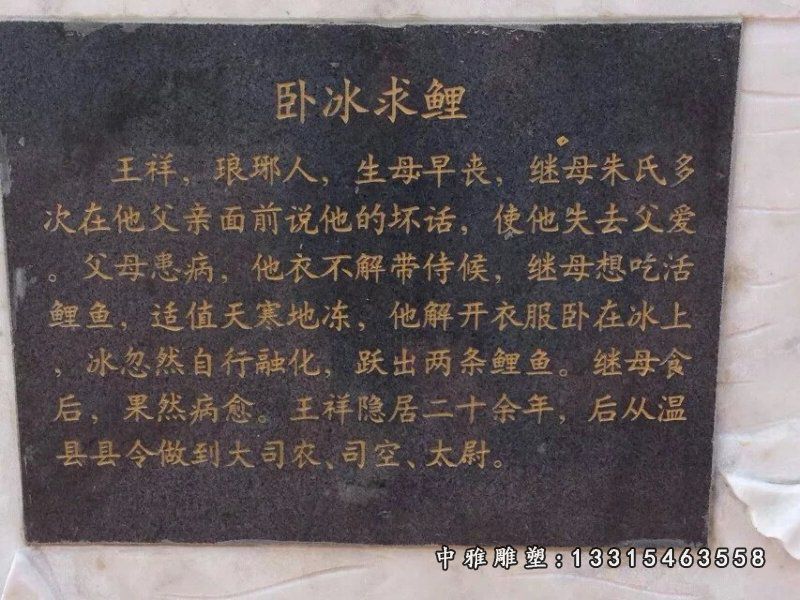 卧冰求鲤
王祥，琅琊人，生母早丧，继母朱氏多
次在他父亲面前说他的坏话，使他失去父爱
。父母患病，他衣不解带侍候，继母想吃活
鲤鱼，适值天寒地冻，他解开衣服卧在冰上
，冰忽然自行融化，跃出两条鲤鱼。继母食
后，果然病愈。王祥隐居二十余年，后从温
县县令做到大司农、司空、太尉。
中雅雕塑:13315463558